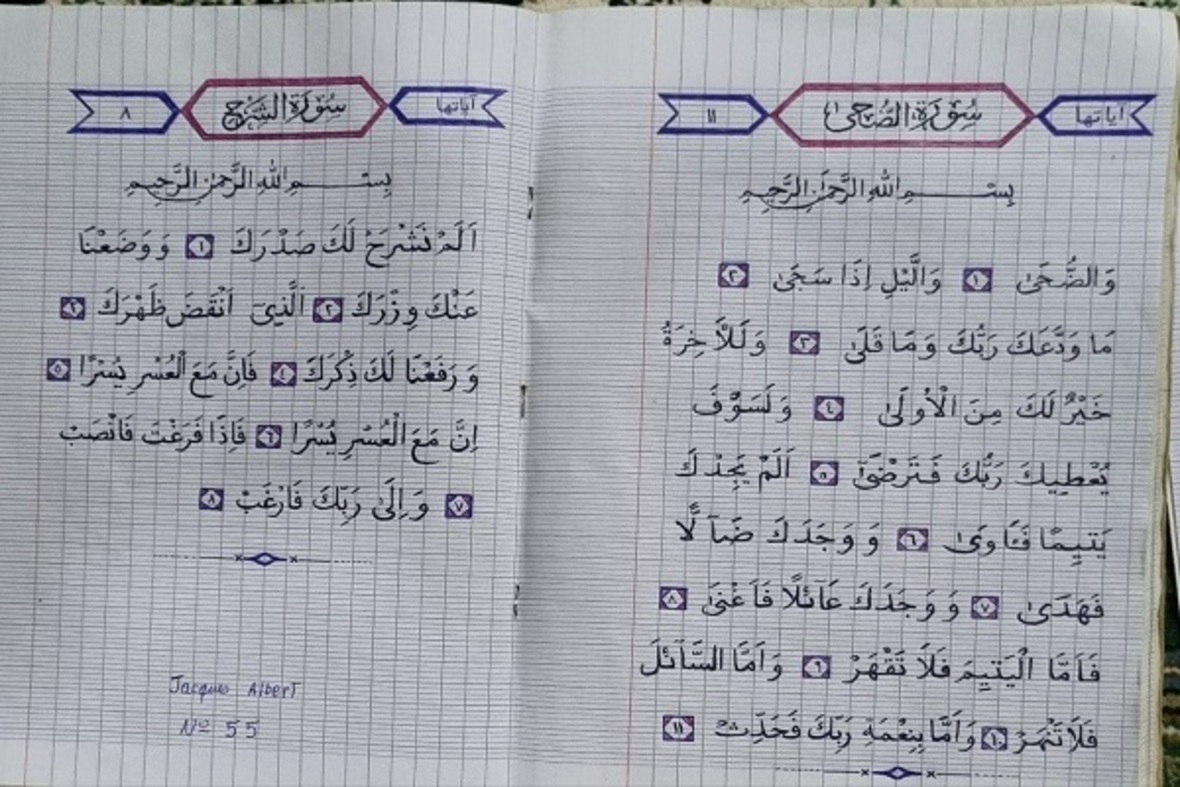 آياتها سُوْرَةُ الضُّحىٰ ١١
بِسْــــمِ اللهِ الرَّحْمَانِ الرَّحِيمِ
وَالضُّحَىٰ ١ وَالَّيْلِ اِذَا سَجَىٰ ٢
مَا وَدَّعَكَ رَبُّكَ وَمَا قَلَىٰ ٣ وَلَلْاَخِرَةُ
خَيْرٌ لَكَ مِنَ الْاُولَىٰ ٤ وَلَسَوْفَ
يُعْطِيكَ رَبُّكَ فَتَرْضَىٰٓ ٥ اَلَمْ يَجِدْكَ
يَتِيمًا فَـَٔاوَىٰ ٦ وَوَجَدَكَ ضَآلًّا
فَهَدَىٰ ٧ وَوَجَدَكَ عَآئِلًا فَاَغْنَىٰ ٨
فَاَمَّا الْيَتِيمَ فَلَا تَقْهَرْ ٩ وَاَمَّا السَّآئِلَ
فَلَا تَنْهَرْ ١٠ وَاَمَّا بِنِعْمَةِ رَبِّكَ فَحَدِّثْ ١١
آياتها سُوْرَةُ الشَّرْحِ ٨
بِسْــــمِ اللهِ الرَّحْمٰنِ الرَّحِيمِ
اَلَمْ نَشْرَحْ لَكَ صَدْرَكَ ١ وَوَضَعْنَا
عَنْكَ وِزْرَكَ ٢ اَلَّذِىٓ اَنْقَضَ ظَهْرَكَ ٣
وَرَفَعْنَا لَكَ ذِكْرَكَ ٤ فَاِنَّ مَعَ الْعُسْرِ يُسْرًا ٥
اِنَّ مَعَ الْعُسْرِ يُسْرًا ٦ فَاِذَا فَرَغْتَ فَانْصَبْ
٧ وَاِلَىٰ رَبِّكَ فَارْغَبْ ٨
Jacques Albert
Nº 55